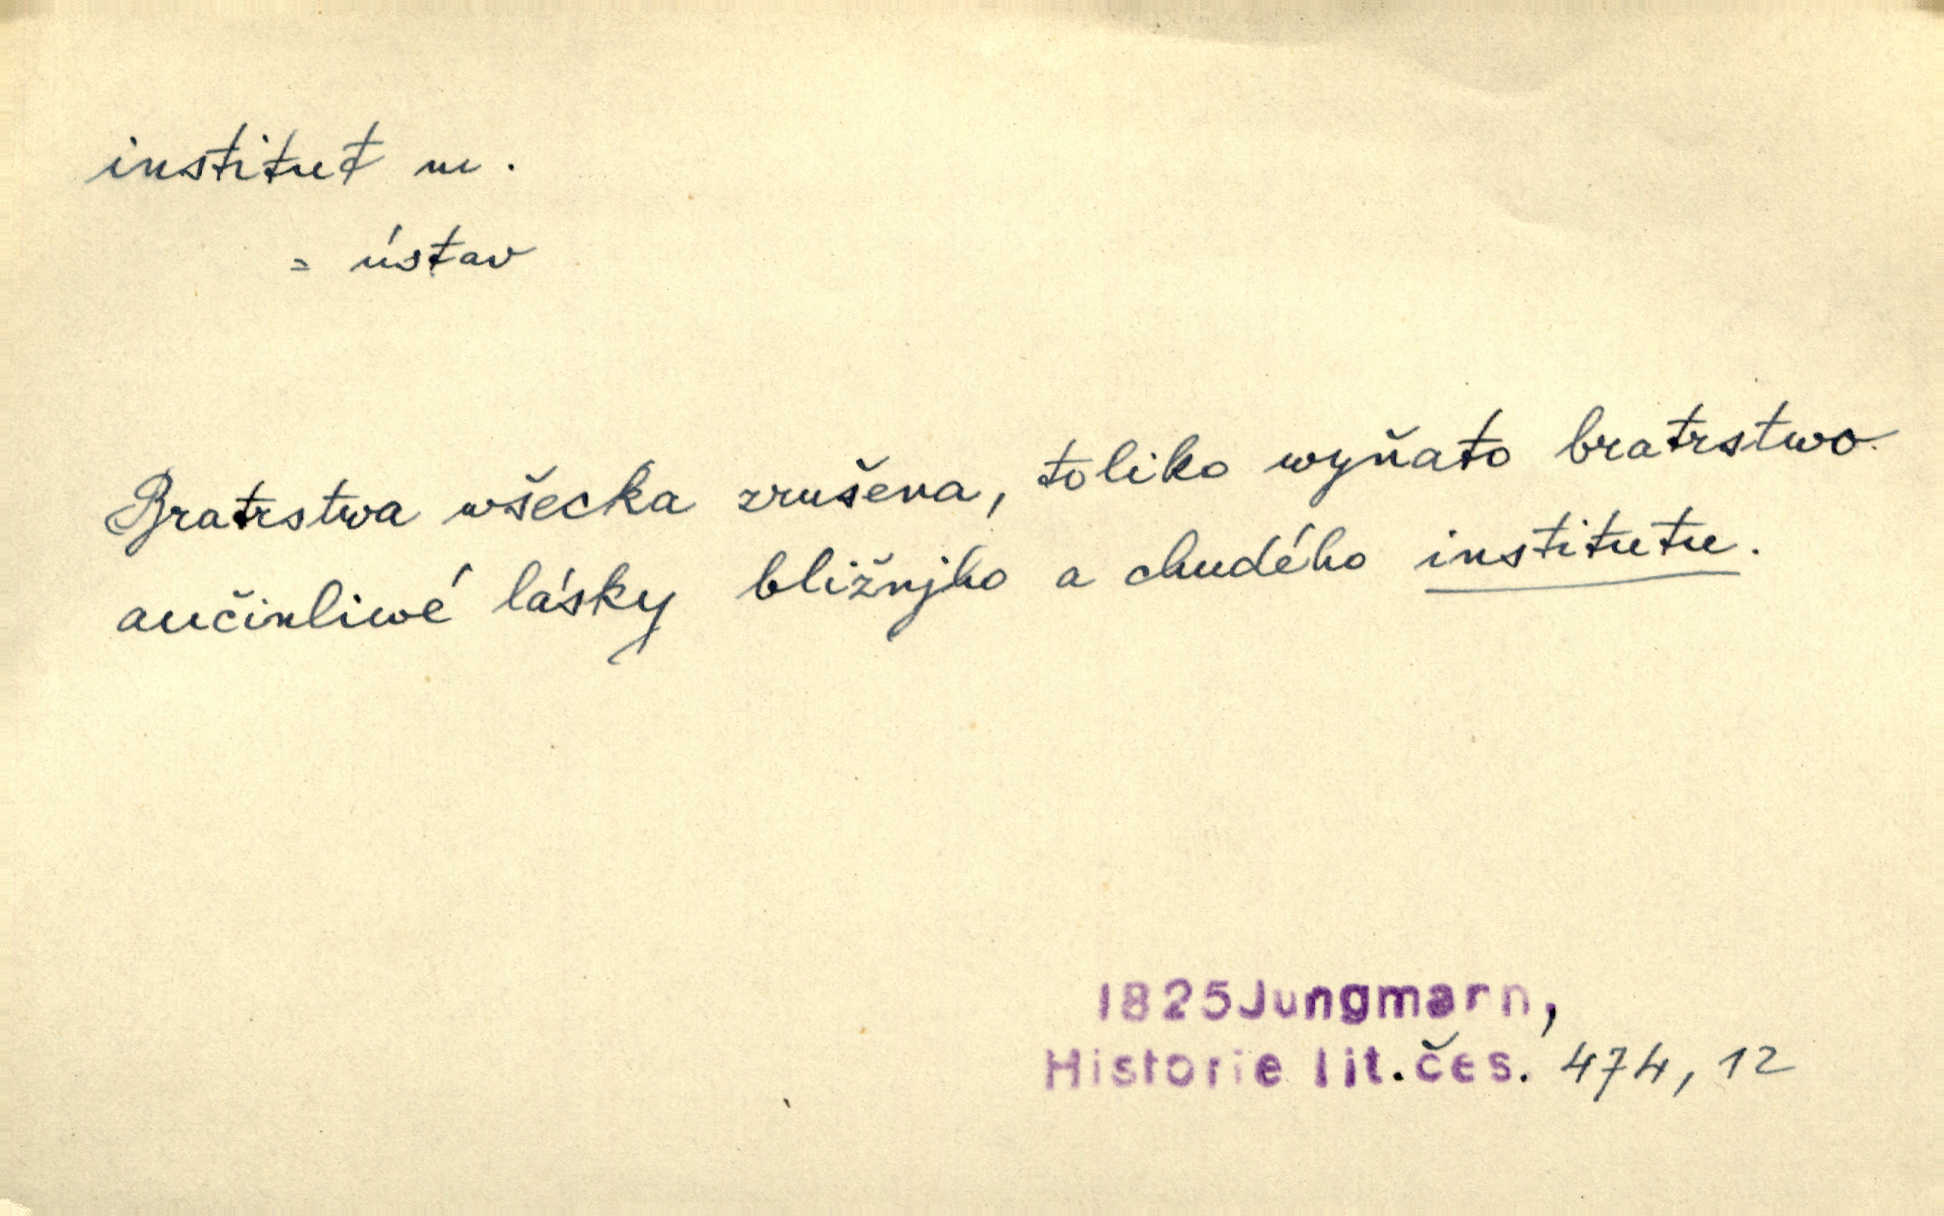 institut m.
= ústav
Bratrstwa wšecka zrušena, toliko wyňato bratrstwo
aučinliwé lásky bližnjho a chudého institutu.
1825 Jungmann,
Historie lit. čes. 474, 12